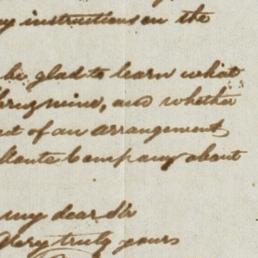 instructions on the
be glad to learn what
and whether
of an arrangement
Company about
my dear Sir
Very truly yours